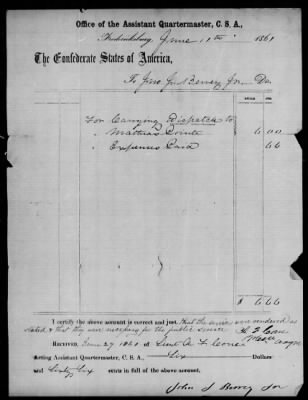 Office of the Assistant Quartermaster, C. S. A.,
Fredericksburg, June 11th 1861
The Confederate States of America,
To Jno J. Berrey Jr. Dr.
For Carrying Dispatch to
" Mathias Point 6 00
" Expenses Paid 66
$ 6 66
I certify the above account is correct and just, that the services were rendered as
stated & that they were necessary for the public service
Received June 27 1861 of Lieut A. F. Cone
Acting Assistant Quartermaster, C. S. A., Six Dollars
and Sixty Six cents in full of the above account.
John J Berrey Jr